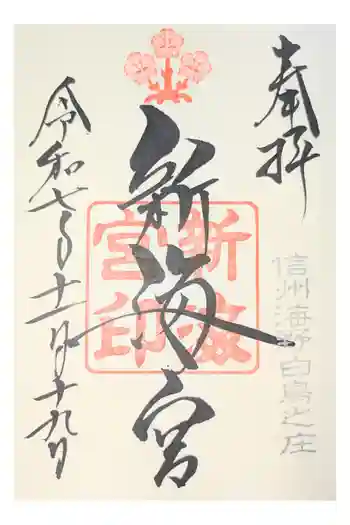 奉拝
信州海野白鳥之庄
新海宮
新海宮印
令和七年十一月十九日